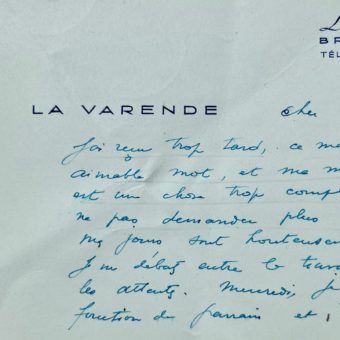 L
BR
TÉL
LA VARENDE
cher
J'ai reçu trop tard, ce ma
aimable mot, et ma m
est une chose trop comp
ne pas demander plus
mes jours sont honteusem
Je me débats entre le trava
les attents. Mercredi, je
fonction de parrain et